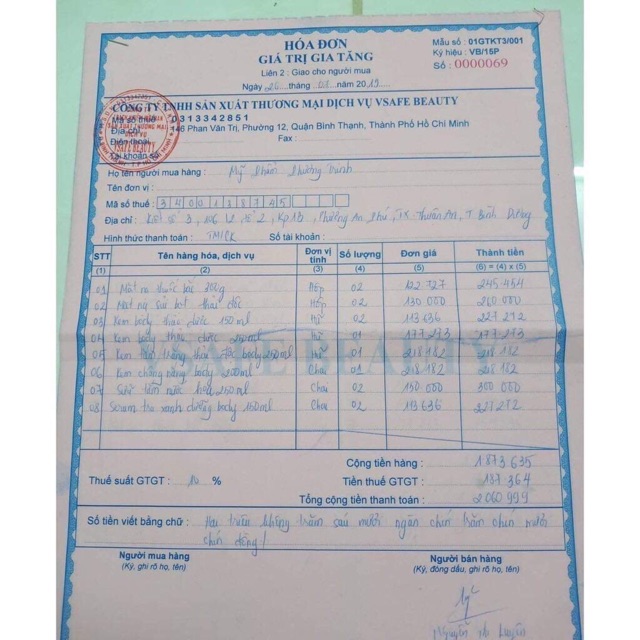 HÓA ĐƠN
GIÁ TRỊ GIA TĂNG
Liên 2 : Giao cho người mua
Mẫu số : 01GTKT3/001
Ký hiệu : VB/15P
Số : 0000069
Ngày 26 tháng 07 năm 2019
CÔNG TY TNHH SẢN XUẤT THƯƠNG MẠI DỊCH VỤ VSAFE BEAUTY
Mã số thuế 0313342851
Địa chỉ 146 Phan Văn Trị, Phường 12, Quận Bình Thạnh, Thành Phố Hồ Chí Minh
Điện thoại Fax :
Tài khoản số
Họ tên người mua hàng : Mỹ Phẩm Phương Trinh
Tên đơn vị :
Mã số thuế : 3400188745
Địa chỉ : Kp 13, Phường An Phú, TX Thuận An, T. Bình Dương
Hình thức thanh toán : TM/CK Số tài khoản :
STT Tên hàng hóa, dịch vụ Đơn vị tính Số lượng Đơn giá Thành tiền
(1) (2) (3) (4) (5) (6) = (4) x (5)
01 Mặt nạ thuốc bắc 300g Hộp 02 122.727 245.454
02 Mặt nạ sủi bọt thải độc Hộp 02 130 000 260 000
03 Kem body thảo dược 150 ml Hũ 02 113 636 227 272
04 Kem body thảo dược 250 ml Hũ 01 177 273 177 273
05 Kem trắng body 250 ml Hũ 01 218 182 218 182
06 Kem chống nắng body 200ml Chai 01 218 182 218 182
07 Sữa tắm nước hoa 250 ml Chai 02 150 000 300 000
08 Serum trà xanh dưỡng body 150ml Chai 02 113 636 227 272
VSAFE BEAUTY
Cộng tiền hàng : 1 873 635
Thuế suất GTGT : 10 % Tiền thuế GTGT : 187 364
Tổng cộng tiền thanh toán : 2 060 999
Số tiền viết bằng chữ : Hai triệu không trăm sáu mươi ngàn chín trăm chín mươi
chín đồng /
Người mua hàng Người bán hàng
(Ký, ghi rõ họ, tên) (Ký, đóng dấu, ghi rõ họ, tên)
Nguyễn Thị Luyến